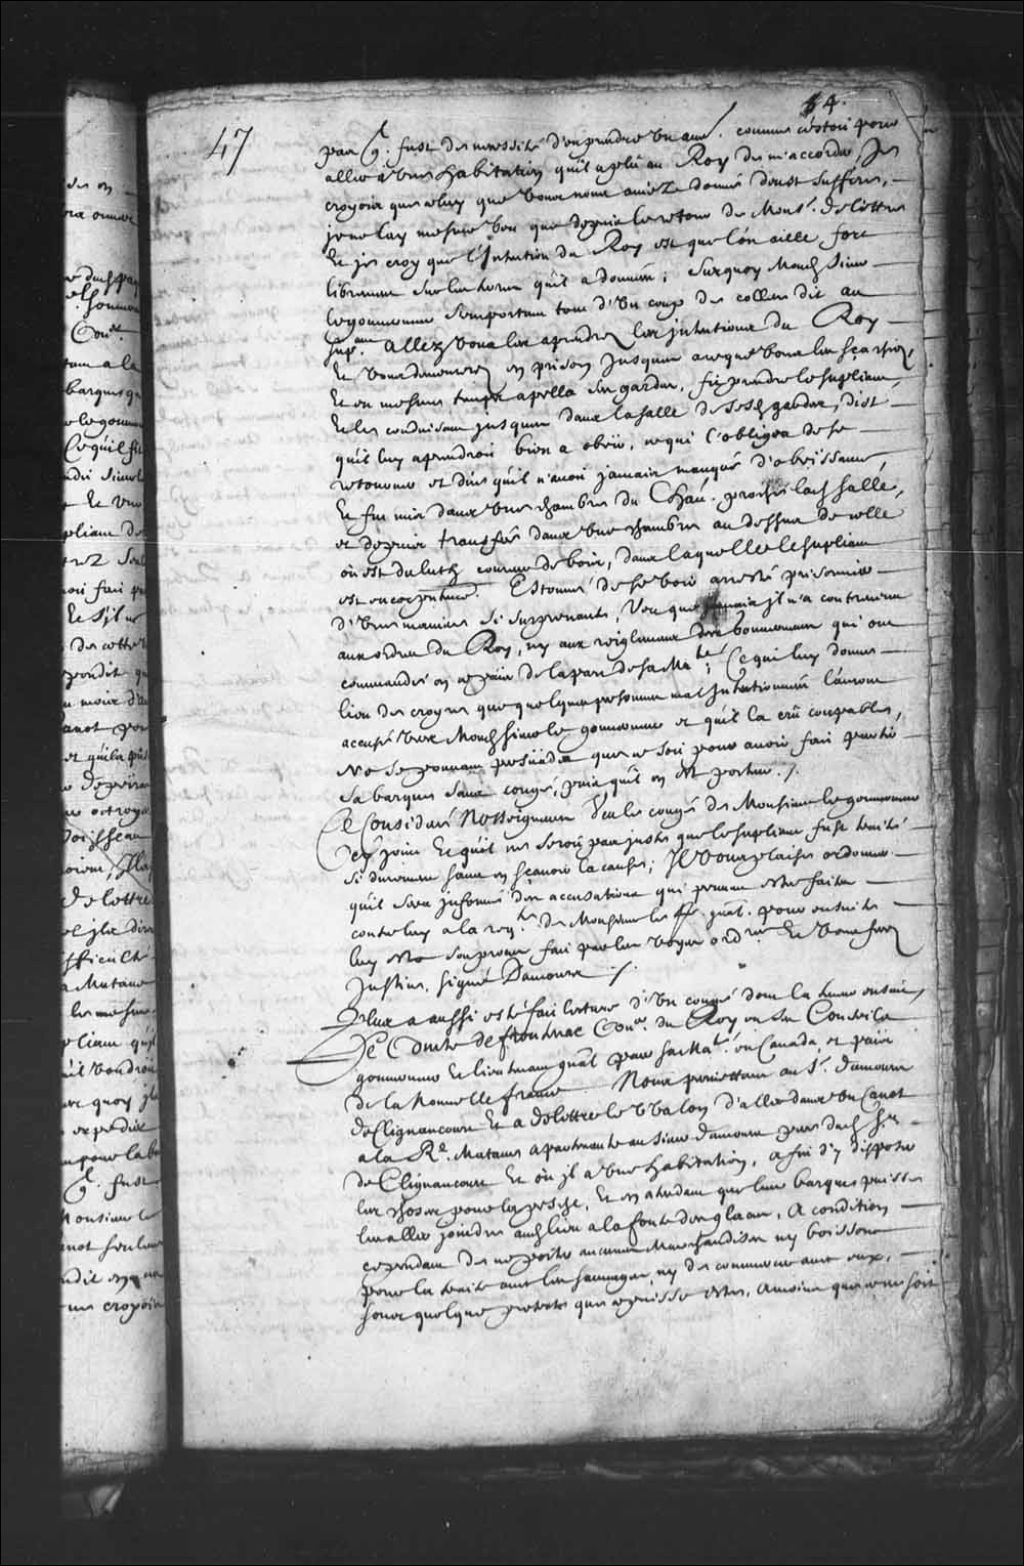 54.
47
pas qu'il fust de necessité d'en prendre un autre. comme c'estoit pour
aller à une habitation qu'il a plû au Roy de m'accorder, Je
croyois que celuy que vous nous aviez donné deust suffire,
je ne l'ay mesme veu que depuis le retour de Mons.r delettre
Et je croy que l'Intention du Roy est que l'on aille fort
librement sur les terres qu'il a données; Surquoy Mond. Sieur
le gouverneur s'emportant tout d'un coup de collere dit au
sup.ant Allez vous en aprendre les intentions du Roy
Et vous demeurerez en prison jusques a ce que vous les scachiez,
Et en mesme temps apella ses gardes, fit prendre le supliant,
Et les conduisant jusques dans la salle de sesd. gardes, dist
qu'il luy aprendroit bien a obeir, ce qui l'obligea de se
retourner et dire qu'il n'avoit jamais manqué d'obeissance,
Et fut mis dans une chambre du Chau. proche lad. salle,
et depuis transferé dans une chambre au dessus de celle
où est dulud. comme de bois, dans laquelle le supliant
est encor detenu. Estonné de se voir arresté prisonnier
d'une maniere si surprenante, Veu que jamais il n'a contrevenu
aux ordres du Roy, ny aux reiglemens des gouverneurs qui ont
commandé en ce pais de la part de sa Ma.té; Ce qui luy donne
lieu de croyre que quelques personnes mal Intentionnées l'auront
accusé vers Mond. sieur le gouverneur et qu'il la crû coupable,
Ne se pouvant persuader que ce soit pour avoir fait partir
sa barque sans congé, puis qu'il en est porteur ./.
Ce Consideré Nosseigneurs Veu le congé de Monsieur le gouverneur
cy joint Et qu'il ne seroit pas juste que le supliant fust traité
si durement sans en sçavoir la cause; Il vous plaise ordonner
qu'il sera informé des accusations qui peuvent estre faites
contre luy a la req.te de Monsieur le pr. gnâl. pour ensuite
luy estre son procez fait par les voyes ord.res Et vous ferez
Justice, signé Damours ./.
Plus a aussi esté fait lecture d'un congé dont la teneur ensuit,
Le Comte de frontenac Con.er du Roy en ses Conseils
gouverneur Et lieutenant gnâl pour sa Ma.té en Canada et païs
de la Nouvelle france Nous permettons au S.r damours
de Clignancourt Et a delettre le vvalon d'aller dans un Canot
a la R.e Matane apartenante au sieur damours pere dud. S.r
de Clignancourt Et où il a une habitation, afin d'y disposer
les choses pour la pesche, Et en attendant que leur barque puisse
les aller joindre aud. lieu a la fonte des glaces, A condition
cependant de ne porter aucunes Marchandises ny boissons
pour la traite avec les sauvages, ny de commercer avec eux,
sous quelque pretexte que ce puisse estre, A moins que ce ne soit